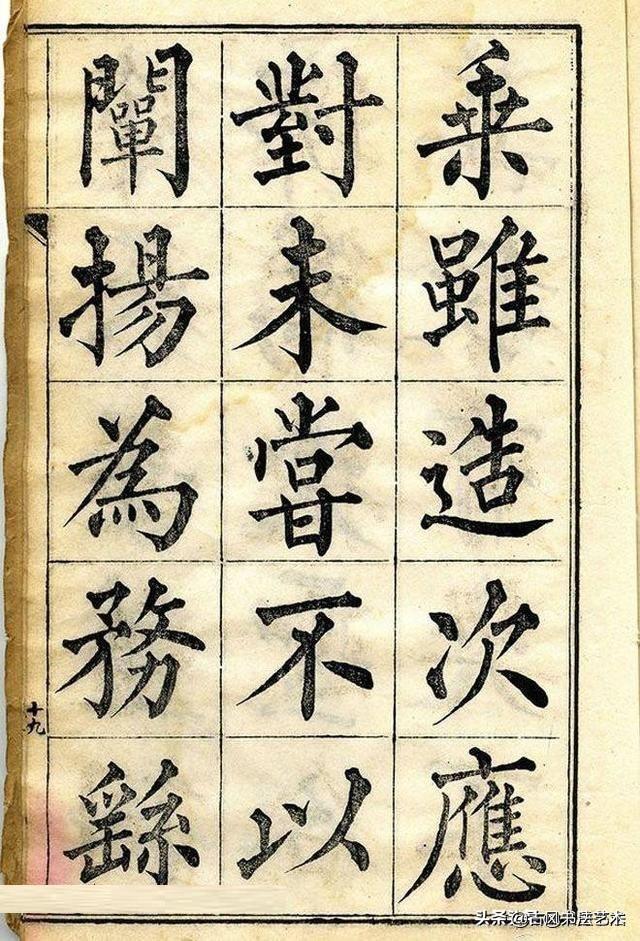 乘雖造次應
對未嘗不以
闡揚為務繇
十九
头条@古风书法艺术